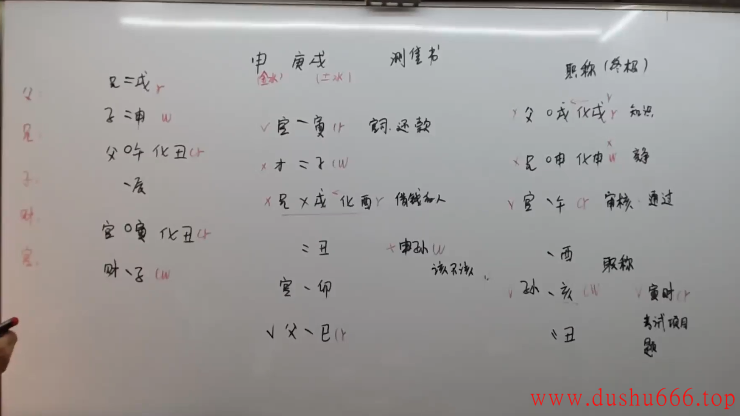 父
兄
子
财
官
兄 = 戌 r
子 = 申 w
父 o 午 化丑 (r
、辰
官 o 寅 化丑 (r
财 、子 (w
申 庚戌 测借书
(金水) (二水)
√ 官 一 寅 (r 还款
× 才 = 子 (w
× 兄 × 戌 化 酉 r 借钱和人
= 丑 × 申孙 w
该不该
官 、卯
√ 父 、巳 (r
职称(终极)
√ 父 o 戌 化戌 r 知识
× 兄 o 申 化申 w 竞争
√ 官 、午 (r 审核 通过
、酉 职称
√ 孙 、亥 (w √ 寅时 (r
〃 丑 考试项目
题
www.dushu666.top